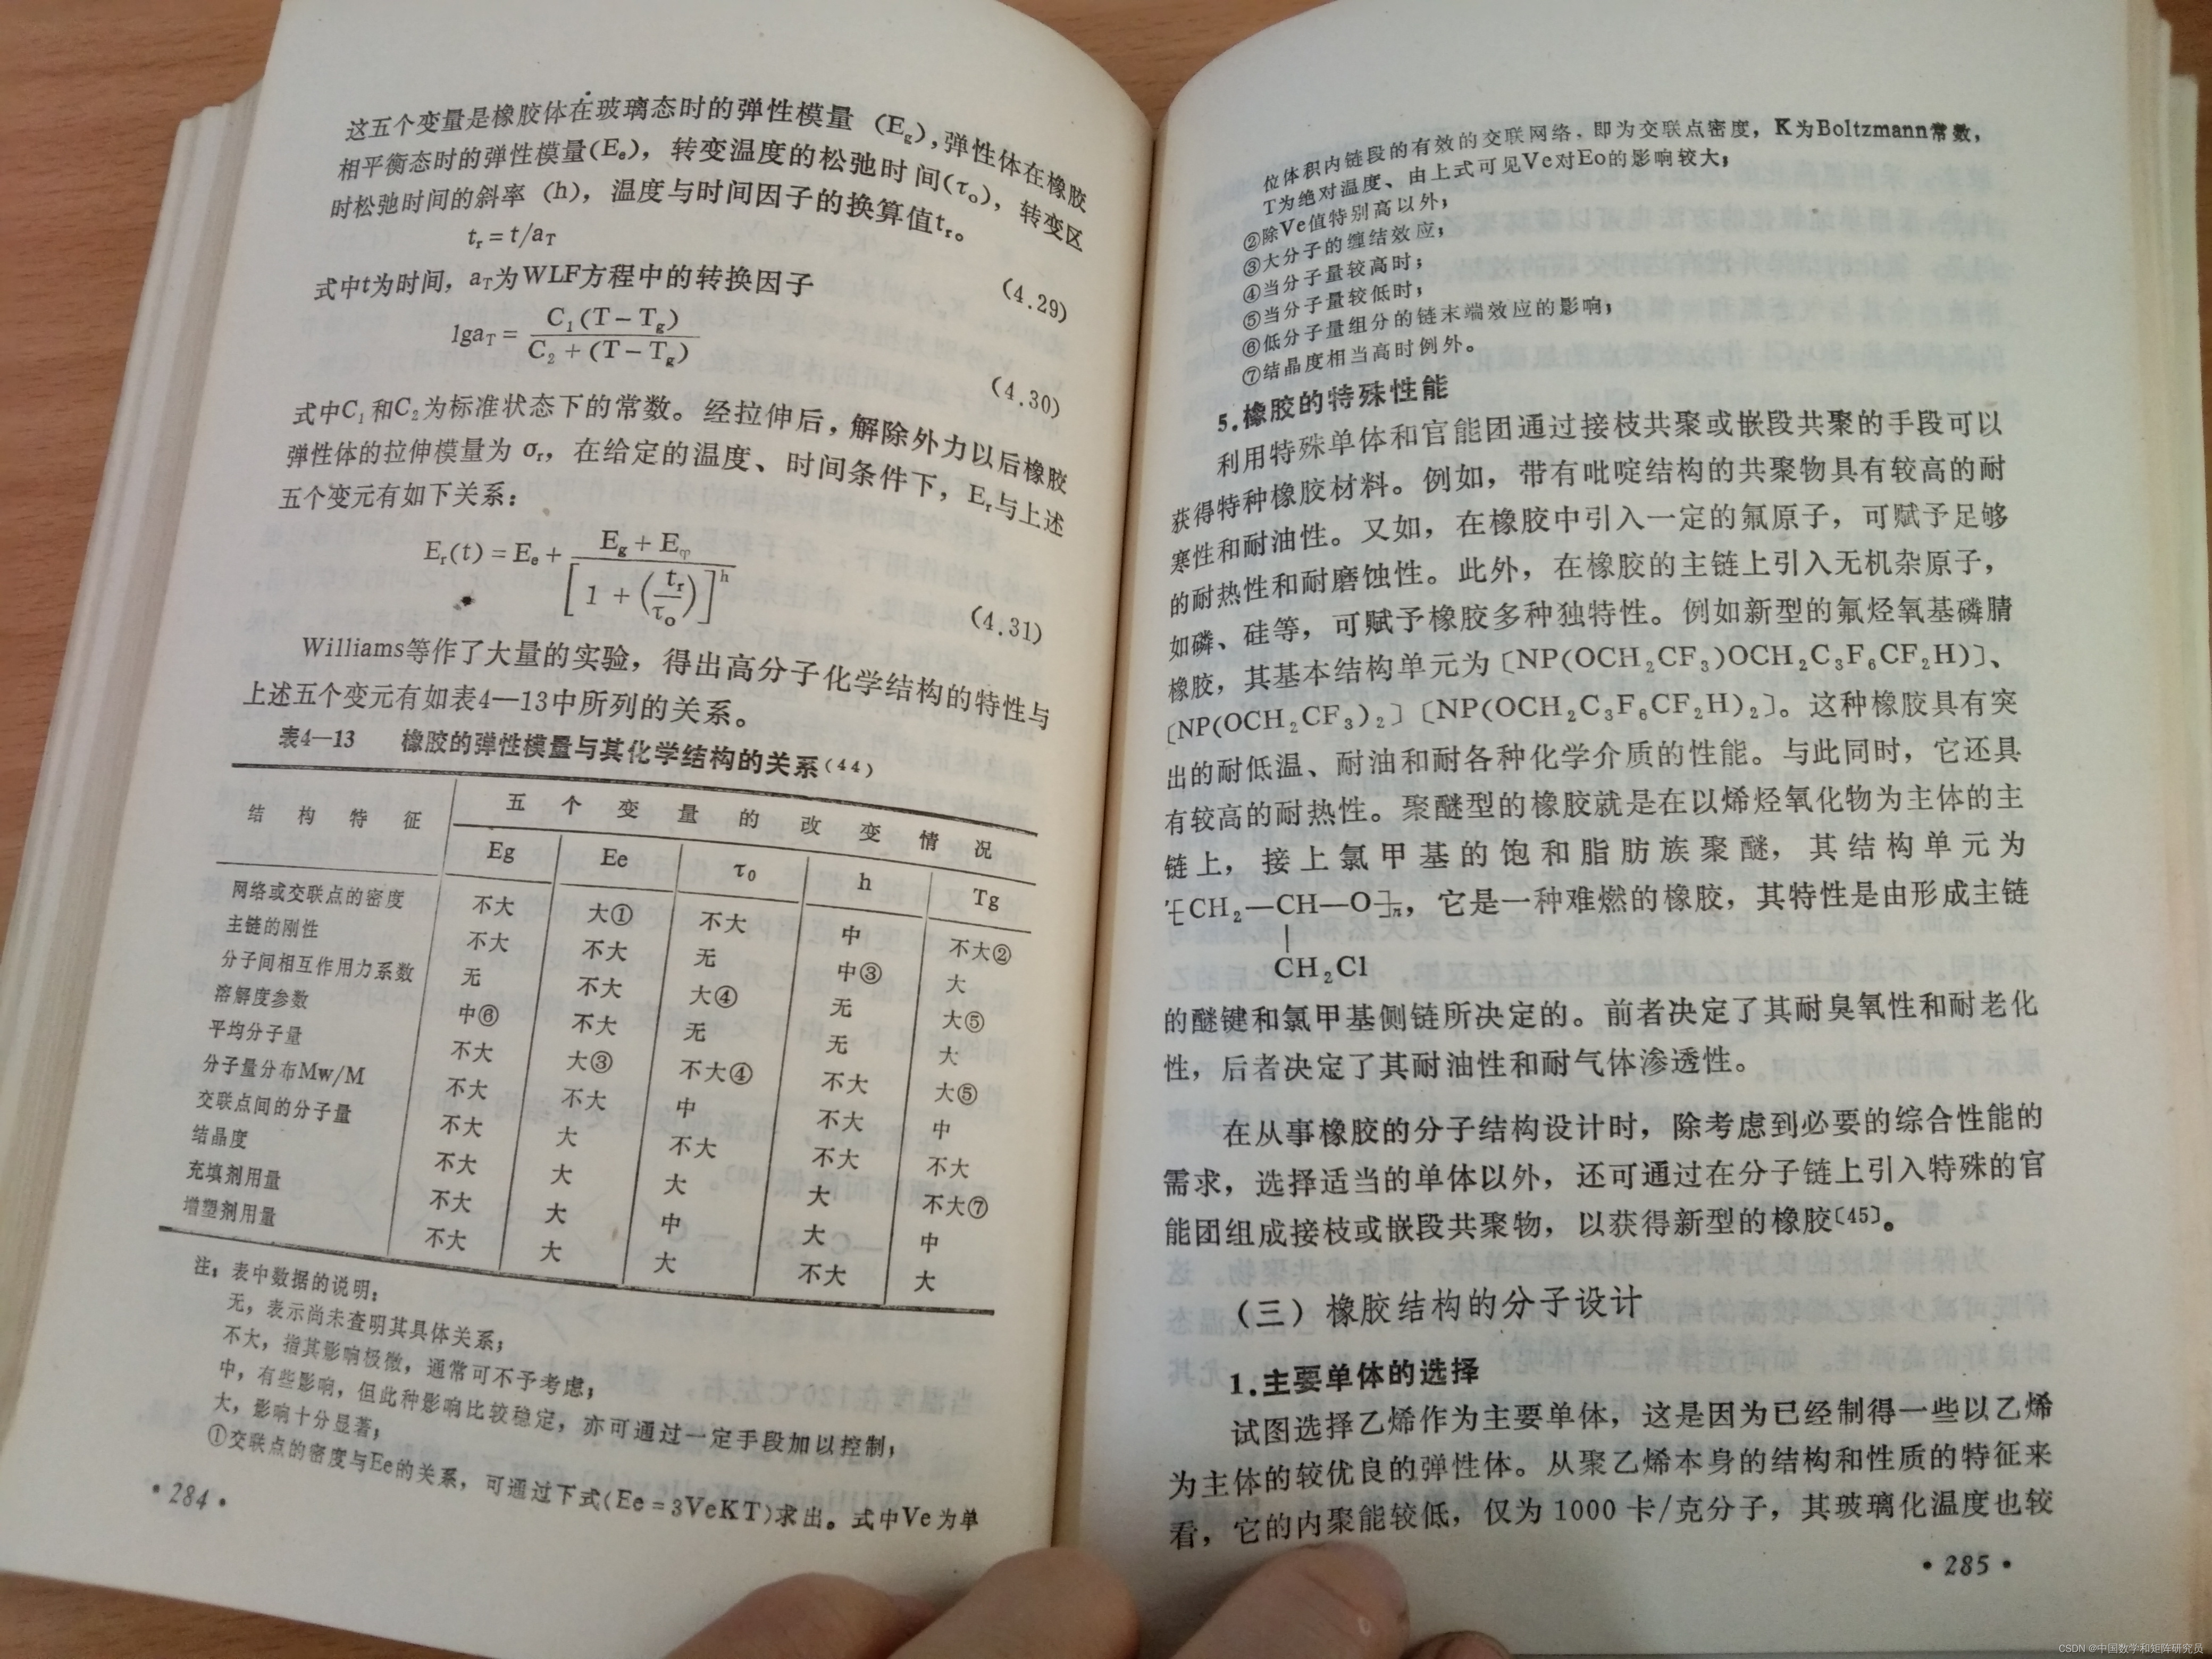 这五个变量是橡胶体在玻璃态时的弹性模量（Eg），弹性体在橡胶
相平衡态时的弹性模量(Ee)，转变温度的松弛时间(τo)，转变区
时松弛时间的斜率（h)，温度与时间因子的换算值tr。
tr = t/aT
(4.29)
式中t为时间，aT为WLF方程中的转换因子
lgaT = C1(T－Tg) / C2＋(T－Tg)
(4.30)
式中C1和C2为标准状态下的常数。经拉伸后，解除外力以后橡胶
弹性体的拉伸模量为 σr，在给定的温度、时间条件下，Er与上述
五个变元有如下关系：
Er(t) = Ee + Eg + Eφ / [1 + (tr/τo)]h
(4.31)
Williams等作了大量的实验，得出高分子化学结构的特性与
上述五个变元有如表4—13中所列的关系。
表4—13 橡胶的弹性模量与其化学结构的关系(44)
结构特征 五个变量的改变情况
Eg Ee τ0 h Tg
网络或交联点的密度 不大 大① 不大 中 不大②
主链的刚性 不大 不大 无 中③ 大
分子间相互作用力系数 无 不大 大④ 无 大⑤
溶解度参数 中⑥ 不大 无 无 大
平均分子量 不大 大③ 不大④ 不大 大⑤
分子量分布Mw/M 不大 不大 中 不大 中
交联点间的分子量 不大 大 不大 不大 不大
结晶度 不大 大 大 大 不大⑦
充填剂用量 不大 大 中 大 中
增塑剂用量 不大 大 大 不大 大
注：表中数据的说明：
无，表示尚未查明其具体关系；
不大，指其影响极微，通常可不予考虑；
中，有些影响，但此种影响比较稳定，亦可通过一定手段加以控制；
大，影响十分显著；
①交联点的密度与Ee的关系，可通过下式(Ee = 3VeKT)求出。式中Ve为单
·284·
位体积内链段的有效的交联网络，即为交联点密度，K为Boltzmann常数，
T为绝对温度、由上式可见Ve对Eo的影响较大；
②除Ve值特别高以外；
③大分子的缠结效应；
④当分子量较高时；
⑤当分子量较低时；
⑥低分子量组分的链末端效应的影响；
⑦结晶度相当高时例外。
5.橡胶的特殊性能
利用特殊单体和官能团通过接枝共聚或嵌段共聚的手段可以
获得特种橡胶材料。例如，带有吡啶结构的共聚物具有较高的耐
寒性和耐油性。又如，在橡胶中引入一定的氟原子，可赋予足够
的耐热性和耐磨蚀性。此外，在橡胶的主链上引入无机杂原子，
如磷、硅等，可赋予橡胶多种独特性。例如新型的氟烃氧基磷腈
橡胶，其基本结构单元为〔NP(OCH2CF3)OCH2C3F6CF2H)〕、
〔NP(OCH2CF3)2〕〔NP(OCH2C3F6CF2H)2〕。这种橡胶具有突
出的耐低温、耐油和耐各种化学介质的性能。与此同时，它还具
有较高的耐热性。聚醚型的橡胶就是在以烯烃氧化物为主体的主
链上，接上氯甲基的饱和脂肪族聚醚，其结构单元为
[CH2—CH—O]n，它是一种难燃的橡胶，其特性是由形成主链
CH2Cl
的醚键和氯甲基侧链所决定的。前者决定了其耐臭氧性和耐老化
性，后者决定了其耐油性和耐气体渗透性。
在从事橡胶的分子结构设计时，除考虑到必要的综合性能的
需求，选择适当的单体以外，还可通过在分子链上引入特殊的官
能团组成接枝或嵌段共聚物，以获得新型的橡胶〔45〕。
（三）橡胶结构的分子设计
1.主要单体的选择
试图选择乙烯作为主要单体，这是因为已经制得一些以乙烯
为主体的较优良的弹性体。从聚乙烯本身的结构和性质的特征来
看，它的内聚能较低，仅为1000卡/克分子，其玻璃化温度也较
·285·
CSDN @中国数学和矩阵研究员